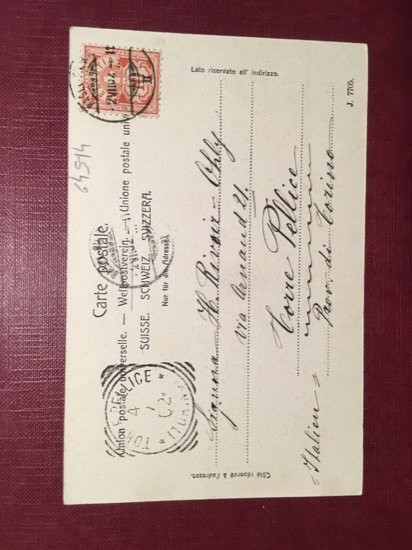 Carte postale.
Union postale universelle. — Weltpostverein. — Unione postale univ
SUISSE. SCHWEIZ. SVIZZERA.
Nur für die Adresse.
Lato riservato all' indirizzo.
Côté réservé à l'adresse.
J. 7705.
64514
TORRE PELLICE
(TORINO)
4
7
02
Signora H. Rivoir-Ohly
via Arnaud 21.
Torre Pellice
Prov. di Torino
Italien